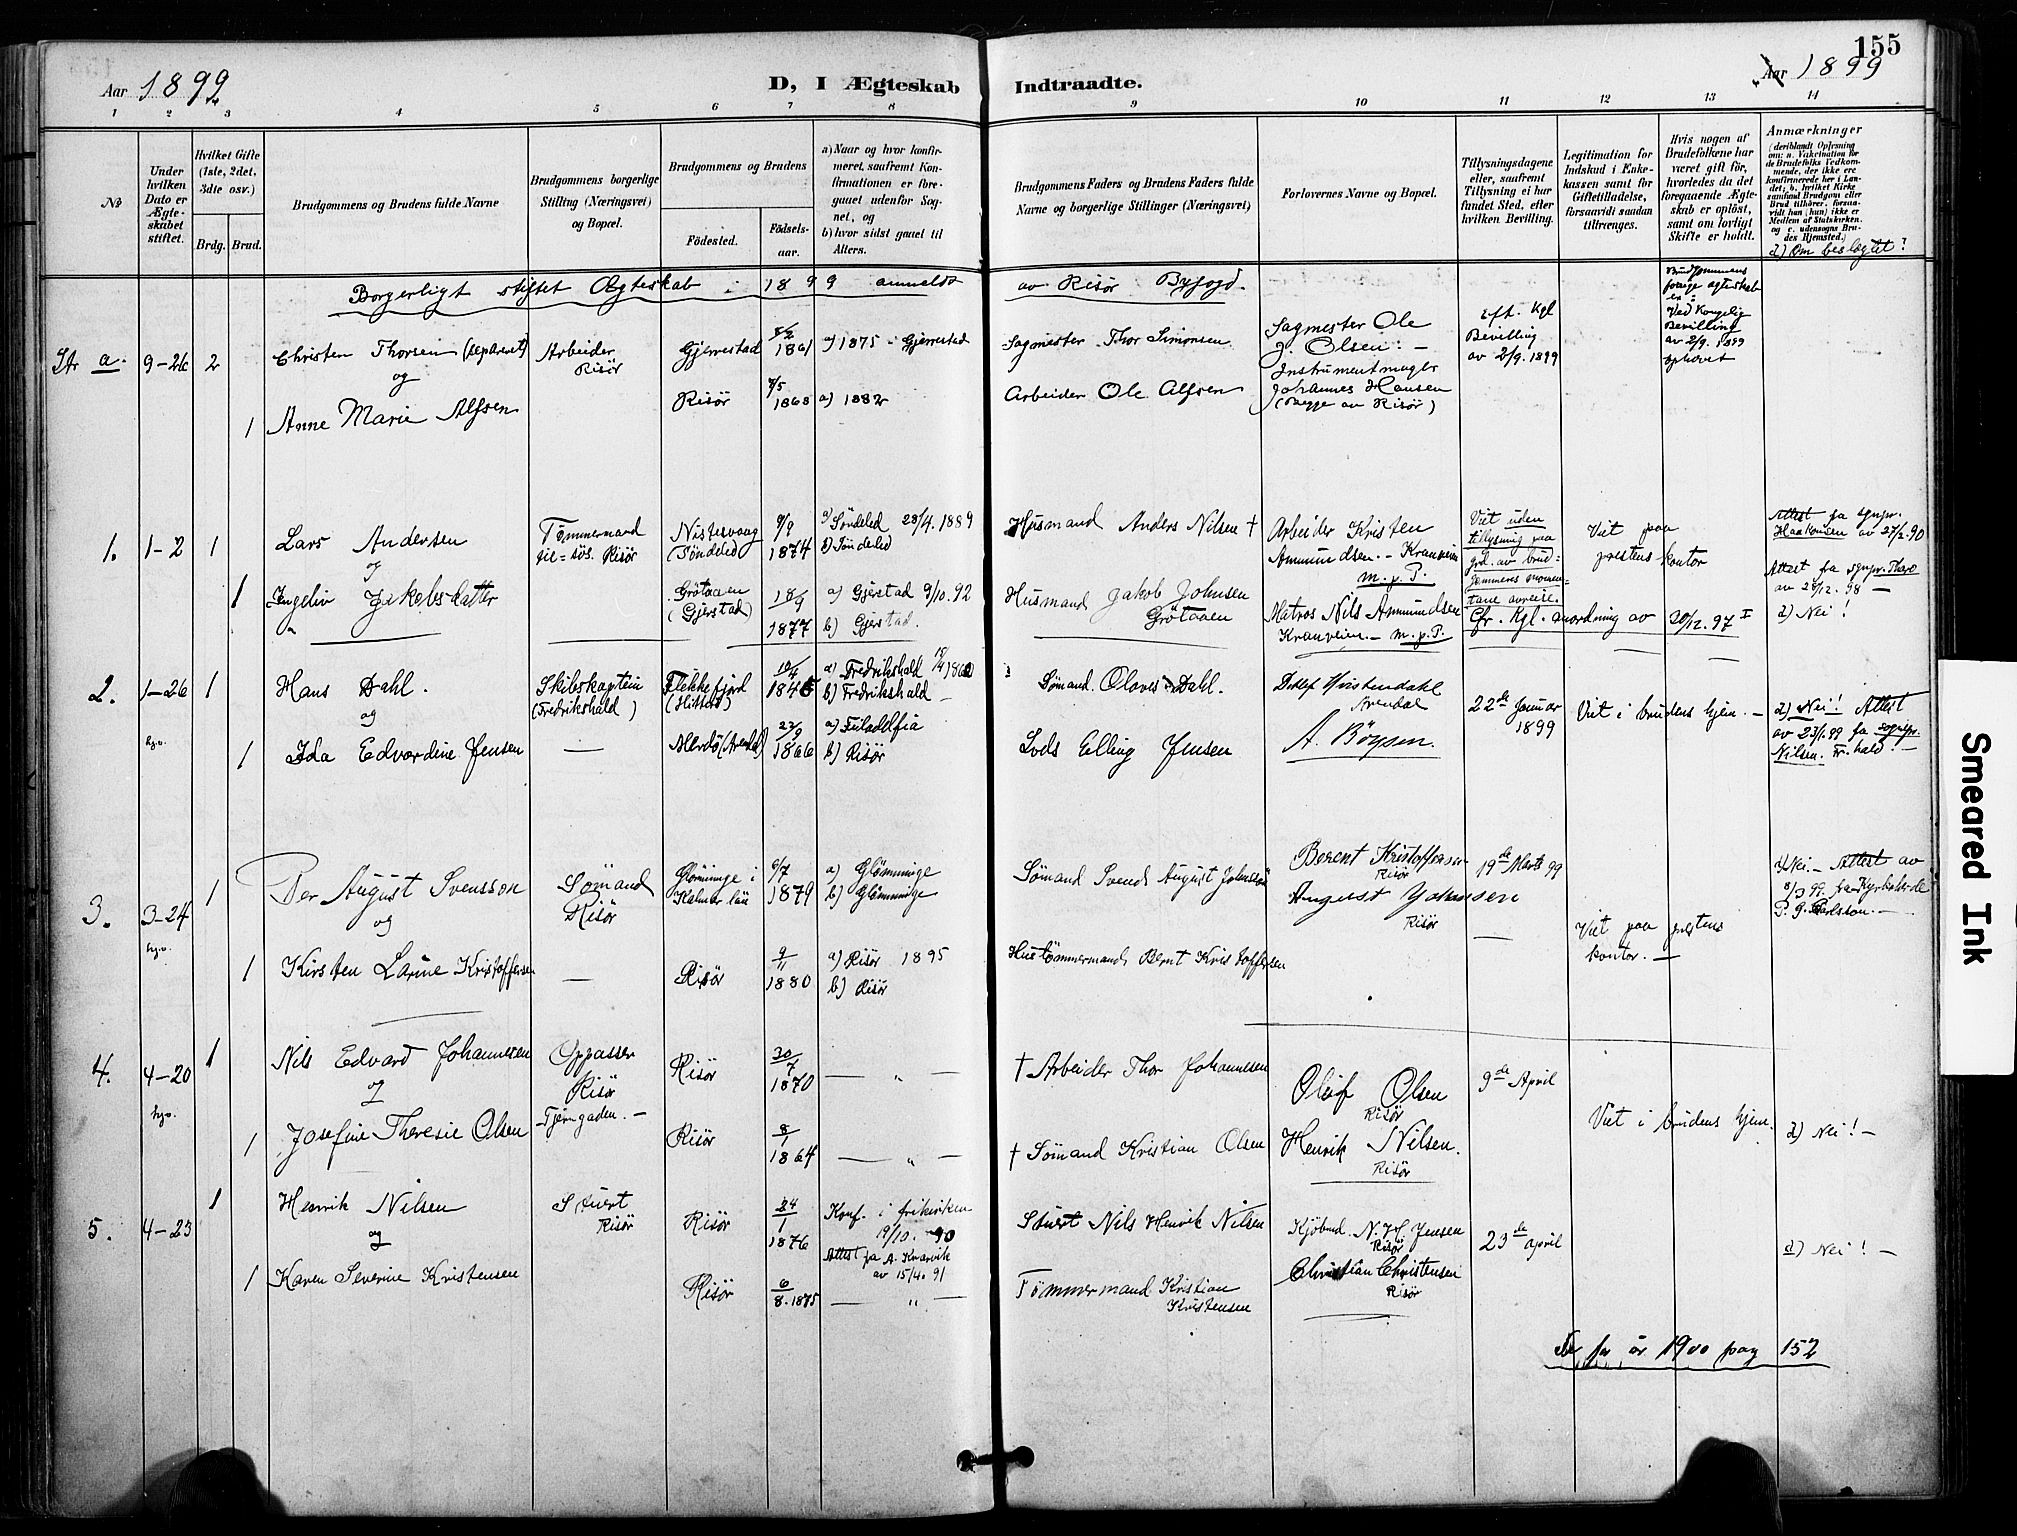 155
Aar 1899
D, I Ægteskab Indtraadte.
Aar 1899
1 2 3 4 5 6 7 8 9 10 11 12 13 14
No
Under hvilken Dato er Ægteskabet stiftet.
Hvilket Gifte (1ste, 2det, 3die osv.)
Brdg. Brud.
Brudgommens og Brudens fulde Navne
Brudgommens borgerlige Stilling (Næringsvei) og Bopæl.
Brudgommens og Brudens
Födested.
Födselsaar.
a) Naar og hvor konfirmeret, saafremt Konfirmationen er foregaaet udenfor Sognet, og
b) hvor sidst gaaet til Alters.
Brudgommens Faders og Brudens Faders fulde Navne og borgerlige Stillinger (Næringsvei)
Forlovernes Navne og Bopæl.
Tillysningsdagene eller, saafremt Tillysning ei har fundet Sted, efter hvilken Bevilling.
Legitimation for Indskud i Enkekassen samt for Giftetilladelse, forsaavidt saadan tiltrænges.
Hvis nogen af Brudefolkene har været gift, hvorledes da det foregaaende Ægteskab er oplöst, samt om lovligt Skifte er holdt.
Anmærkninger
(deriblandt Oplysning om: a. Vakcination for de Brudefolks Vedkommende, der ikke ere konfirmerede her i Landet; b. hvilket Kirkesamfund Brudgom eller Brud tilhörer, forsaavidt han (hun) ikke er Medlem af Statskirken, og c. udensogns Brudes Hjemsted.)
d) Om beslægtet?
Borgerligt stiftet Ægteskab i 1899 anmeldt av Risör Byfogd.
Litr a. 9-26 2 Christen Thorsen (separeret) Arbeider Risör Gjerrestad 1861 a) 1875 - Gjerrestad
Sagmester Thor Simonsen Sagmester Ole J. Olsen. -
eft. Kgl Bevilling av 2/9. 1899
Brudgommens forrige ægteskab er: Ved Kongelig Bevilling av 2/9. 1899 ophævet
og
1 Anne Marie Alfsen Risör 1868 a) 1882
Arbeider Ole Alfsen Instrumentmager Johannes Hansen (Begge av Risör)
1. 1-2 1 Lars Andersen Tömmermand til-sös. Risör Nistesvaag (Söndeled) 9/9 1874 a) Söndeled 28/4. 1889 b) Söndeled
Husmand Anders Nilsen † Arbeider Kristen Ammundsen. - Kranveien m.p.P.
Viet uden tillysning paa grd. av brudgommens momentane avreise.
Viet paa prestens kontor
Attest fra sognpr. Haakonsen av 27/12. 90
og
1 Ingeliv Jakobsdatter Grötaaen (Gjerstad) 18/9 1877 a) Gjerstad 9/10. 92 b) Gjerstad.
Husmand Jakob Johnsen Grötaaen Matros Nils Ammundsen Kranveien. - m.p.P.
Cfr. Kgl. anordning av 30/12. 97 I
Attest fra sognpr. av 28/12. 98 -
d) Nei!
2. 1-26 1 Hans Dahl. Skibskaptein (Fredrikshald) Flekkefjord (Hitterö) 10/4 1845 a) Fredrikshald b) Fredrikshald -
Sömand Olaves Dahl. Detlef Hvistendahl Arendal
22de Januar 1899 Viet i brudens hjem. -
d) Nei! Attest av 23/1. 99 fra sognpr. Nilsen. Fr.hald! -
hjv.
og
1 Ida Edvardine Jensen - Merdö (Arendal) 22/9 1866 a) Filadelfia b) Risör
Lods Elling Jensen A. Böysen.
3. 3-24 1 Per August Svensson Sömand Risör Glömminge i Kalmar län 6/7 1879 a) Glömminge b) Glömminge
Sömand Svend August Johnsson Berent Kristoffersen Risör 19de Marts 99
d) Nei. - Attest av 8/3 99. fra Kyrkoherde P. G. Carlsson. -
hjv.
og
August Johnsen Risör
Viet paa prestens kontor. -
1 Kirsten Larine Kristoffersen - Risör 9/11 1880 a) Risör 1895 b) Risör
Hustömmermand Bernt Kristoffersen -
4. 4-20 1 Nils Edvard Johannesen Oppasser Risör Tjerngaden. - Risör 30/7 1870 - " -
† Arbeider Thor Johannesen Oluf Olsen Risör 9de April
hjv.
og
1 Josefine Theresie Olsen Risör 8/1 1864 - " -
† Sömand Kristian Olsen Henrik Nilsen. Risör
Viet i brudens hjem. d) Nei! -
5. 4-23 1 Henrik Nilsen Stuert Risör Risör 24/1 1876 Konf. i frikirken 19/10. - 90 Attest fra A. Kvarvik av 15/4. 91
Stuert Nils Henrik Nilsen Kjöbmd. N. H. Jensen Risör 23de april
d) Nei! -
og
1 Karen Severine Kristensen Risör 6/8. 1875 - " -
Tömmermand Kristian Kristensen Christian Christensen Risör
Se for år 1900 pag 152
Smeared Ink